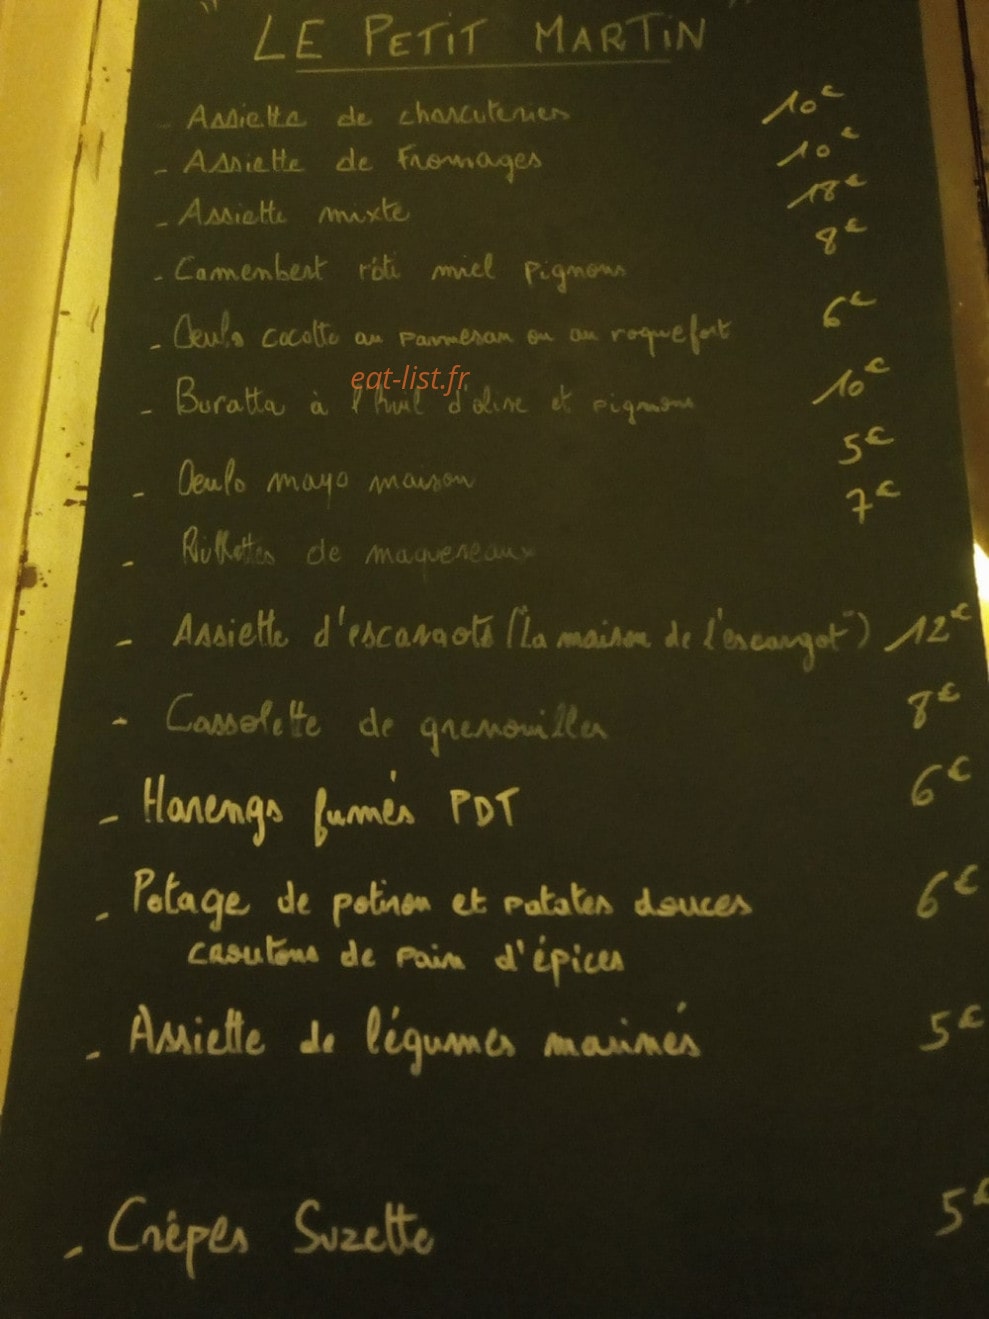 "LE PETIT MARTIN"
- Assiette de charcuteries 10€
- Assiette de Fromages 10€
- Assiette mixte 18€
- Camembert rôti miel pignons 8€
- Oeufs cocotte au parmesan ou au roquefort 6€
eat-list.fr
- Buratta à l'huil d'olive et pignons 10€
- Oeufs mayo maison 5€
- Rillettes de maquereaux 7€
- Assiette d'escargots ("La maison de l'escargot") 12€
- Cassolette de grenouilles 8€
- Harengs fumés PDT 6€
- Potage de potiron et patates douces 6€
croutons de pain d'épices
- Assiette de légumes marinés 5€
- Crêpes Suzette 5€